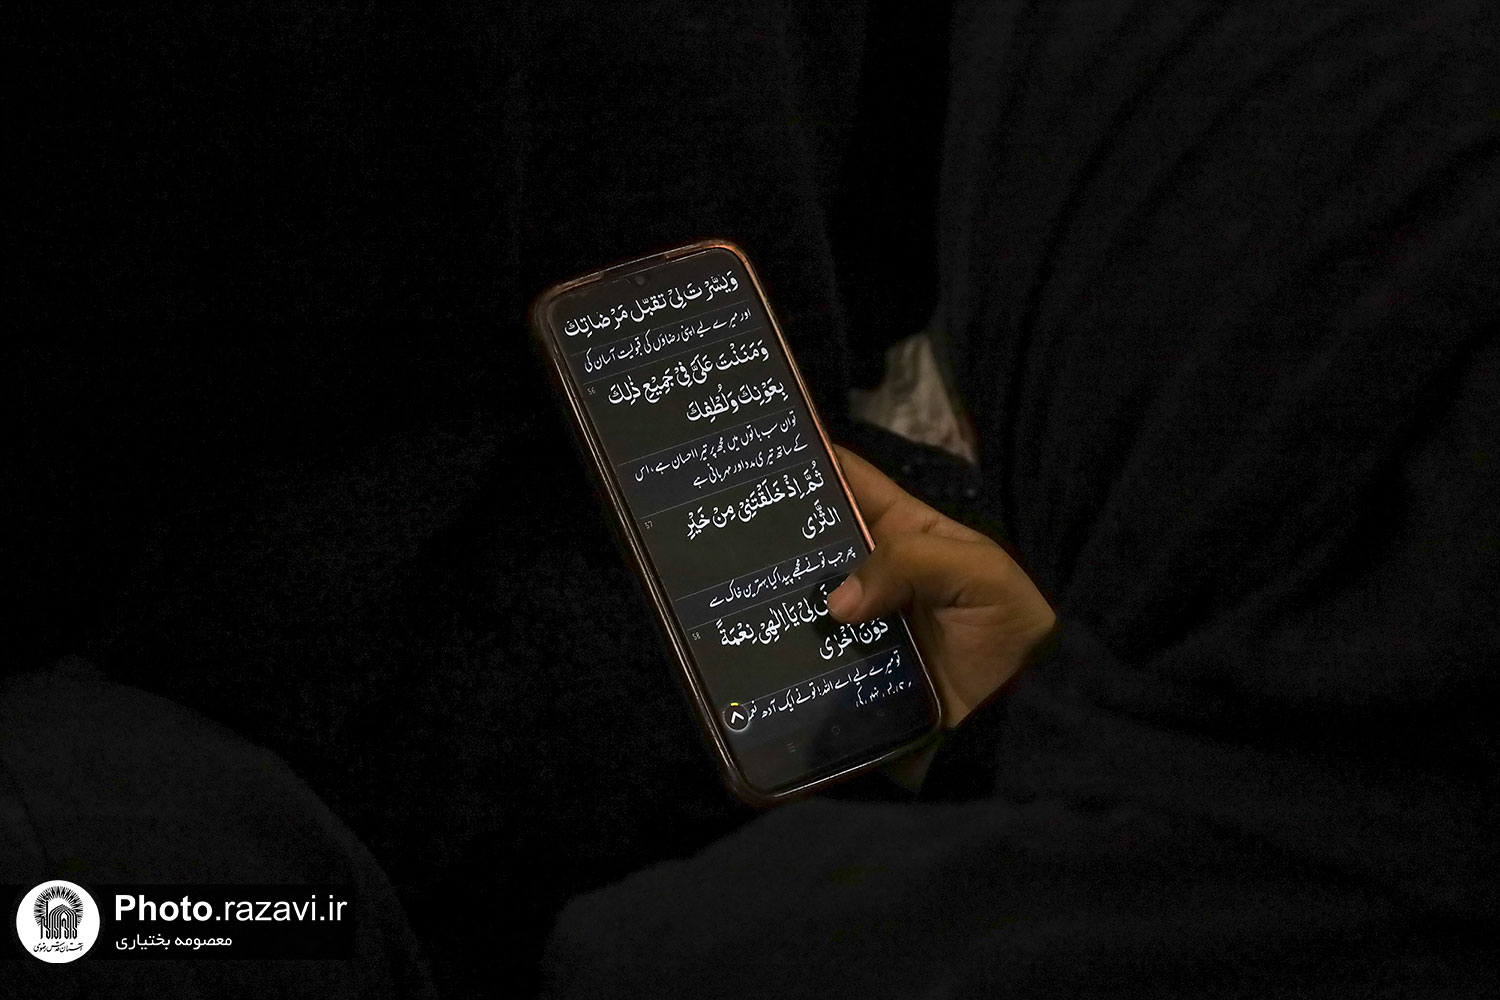 وَيَسَّرْتَ لِیْ تَقَبُّلَ مَرْضَاتِكَ
اور میرے لیے اپنی رضاؤں کی قبولیت آسان کی
56
وَمَنَنْتَ عَلَیَّ فِیْ جَمِیْعِ ذٰلِكَ
بِعَوْنِكَ وَلُطْفِكَ
تو ان سب باتوں میں مجھ پر تیرا احسان ہے، اس
کے ساتھ تیری مدد اور مہربانی ہے
57
ثُمَّ اِذْ خَلَقْتَنِیْ مِنْ خَیْرِ
الثَّرٰی
پھر جب تو نے مجھے پیدا کیا بہترین خاک سے
58
لِیْ یَا اِلٰهِیْ نِعْمَةً
دُوْنَ اُخْرٰی
تو میرے لیے اے اللہ! تو نے ایک آدھ
Photo.razavi.ir
معصومه بختیاری
آستان قدس رضوی